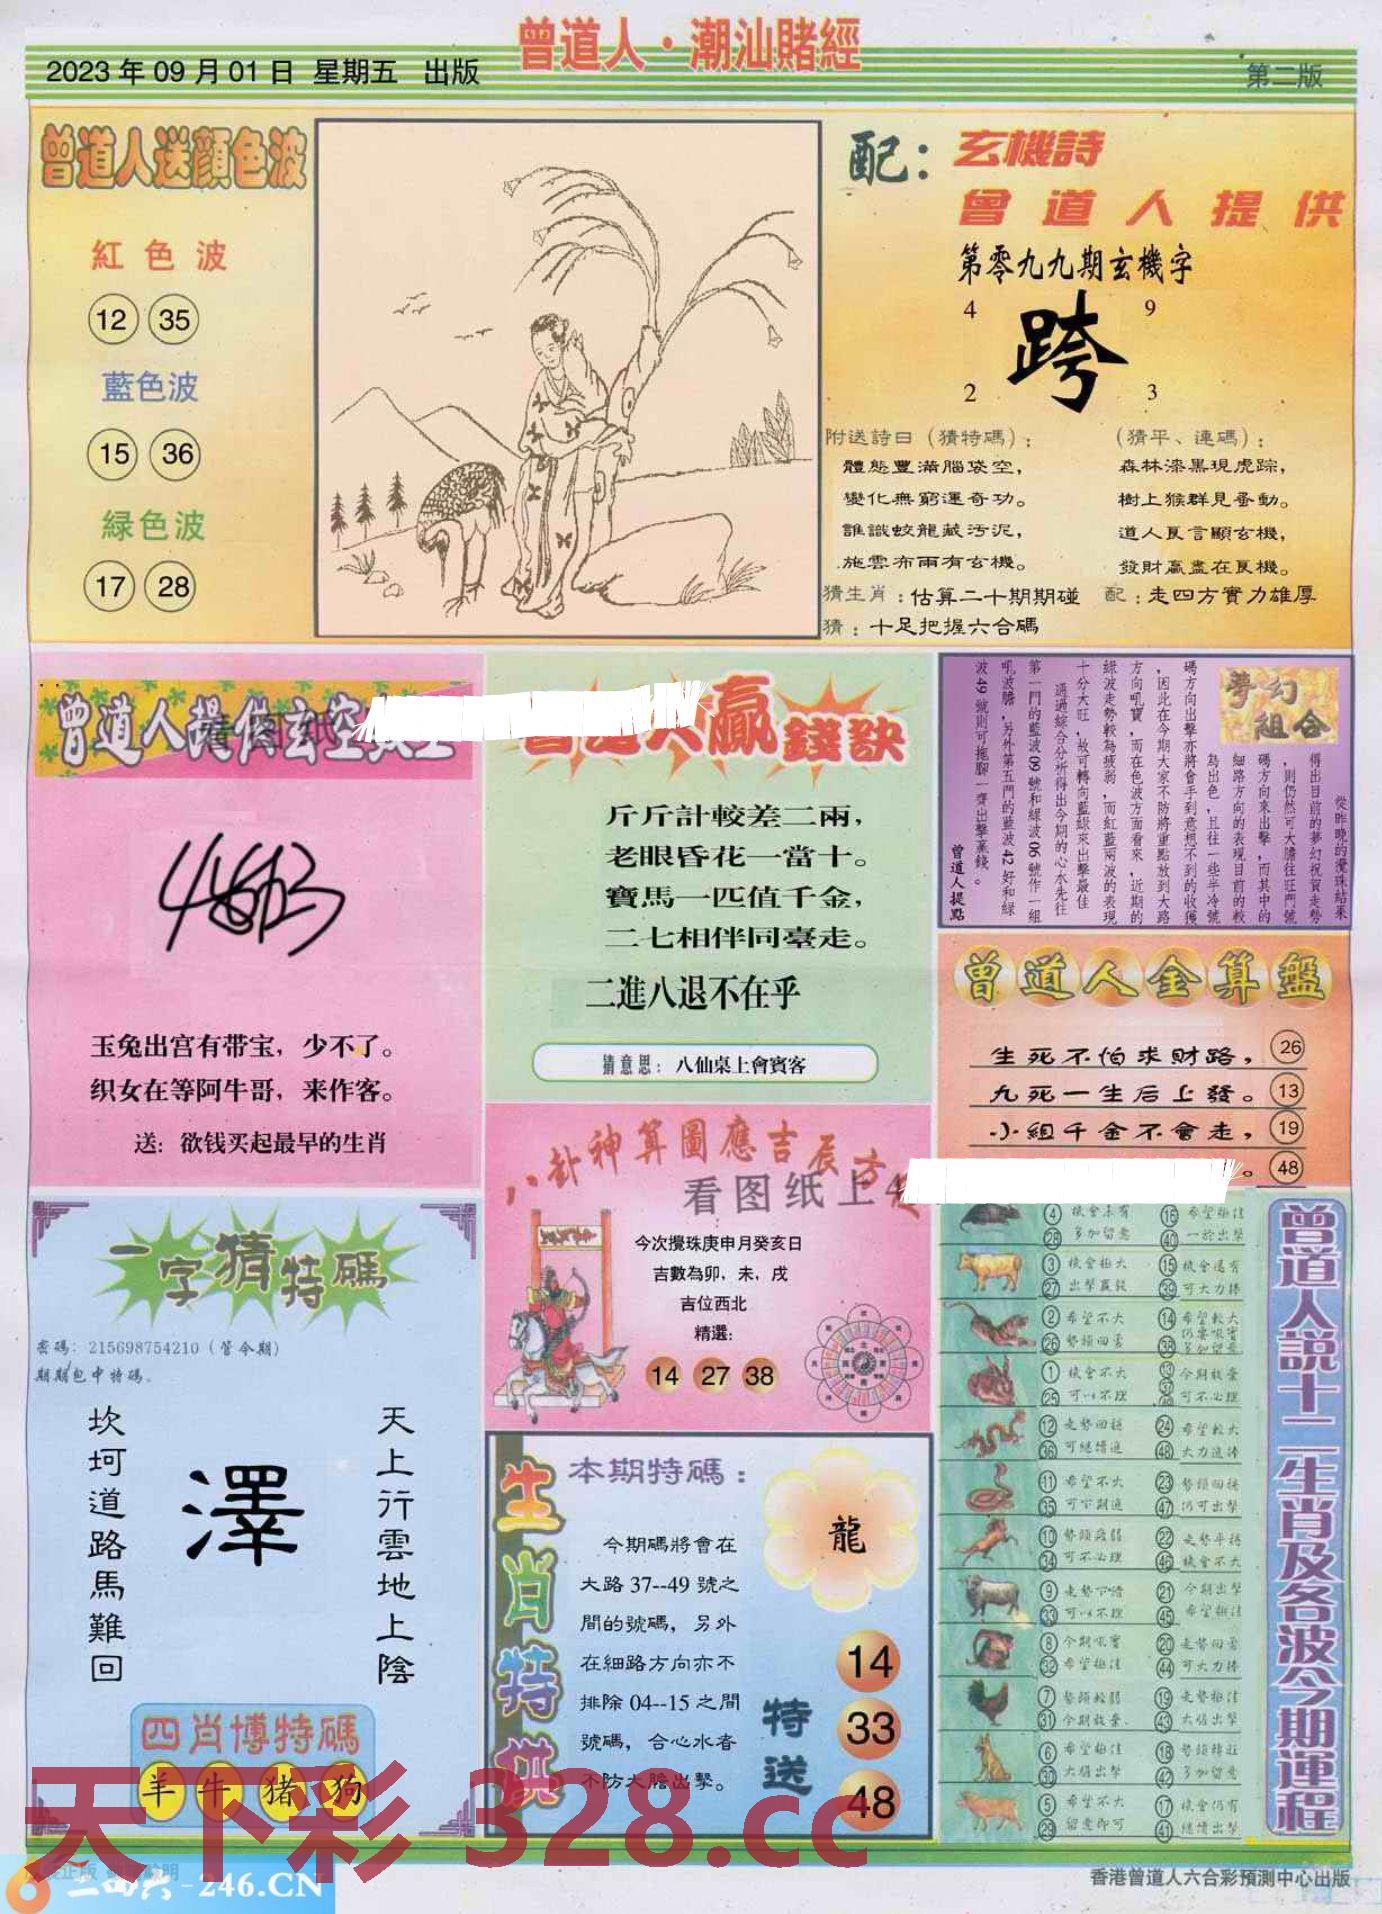 曾道人·潮汕賭經
2023年09月01日 星期五 出版
第二版
曾道人送顔色波
紅色波
12 35
藍色波
15 36
緑色波
17 28
配：玄機詩
曾道人提供
第零九九期玄機字
4 9
跨
2 3
附送詩日（猜特碼）：
體態豐滿腦袋空，
變化無窮運奇功。
誰識蛟龍藏汚泥，
施雲布雨有玄機。
（猜平、連碼）：
森林漆黑現虎踪，
樹上猴群見蚤動。
道人良言顯玄機，
發財赢盡在良機。
猜生肖：估算二十期期碰
配：走四方實力雄厚
猜：十足把握六合碼
曾道人提供玄空
玉兔出宫有带宝，少不了。
织女在等阿牛哥，来作客。
送：欲钱买起最早的生肖
贏錢訣
斤斤計較差二兩，
老眼昏花一當十。
寶馬一匹值千金，
二七相伴同臺走。
二進八退不在乎
猜意思：八仙桌上會賓客
夢幻組合
從昨晚的攪珠結果
得出目前的夢幻祝賀走勢
，則仍然可大膽往旺門號
碼方向來出擊，而其中的
細路方向的表現目前的較
為出色，且往一些半冷號
碼方向出擊亦將會手到意想不到的收獲
，因此在今期大家不防將重點放到大路
方向吼寶，而在色波方面看來，近期的
綠波走勢較為疲弱，而紅藍兩波的表現
十分大旺，故可轉向藍綠來出擊最佳
通過綜合分析得出今期的心水先往
第一門的藍波09號和綠波06號作一組
吼波膽，另外第五門的藍波42好和綠
波49號則可拖腳一齊出擊贏錢。
曾道人提點
曾道人金算盤
生死不怕求財路， 26
九死一生后上發。 13
小組千金不會走， 19
。 48
八卦神算圖應吉辰方位
看图纸上4
今次攪珠庚申月癸亥日
吉數為卯，未，戌
吉位西北
精選：
14 27 38
一字猜特碼
密碼：215698754210（管今期）
期期包中特碼。
天上行雲地上陰
澤
坎坷道路馬難回
四肖博特碼
羊 牛 猪 狗
生肖特供
本期特碼：
龍
今期碼將會在
大路37--49號之
間的號碼，另外
在細路方向亦不
排除04--15之間
號碼，合心水者
不防大膽出擊。
特送
14
33
48
曾道人說十二生肖及各波今期運程
4 機會未有 16 希望極佳
28 多加留意 40 一於出擊
3 機會極大 15 機會還有
27 出擊贏錢 39 可大力捧
2 希望不大 14 希望較大
26 勢頭回雲 38
1 機會不大 今期放棄
25 可以不理 可不必理
12 走勢回穩 24 希望較大
36 可繼續追 48 大力追捧
11 希望不大 23 勢頭回穩
35 可下期追 47 仍可出擊
10 勢頭疲弱 22 走勢平穩
34 可不必理 46 機會不大
9 走勢下滑 21 今期出擊
33 可以不理 45 希望極佳
8 今期吼寶 20 走勢回雲
32 希望極佳 44 可大力捧
7 勢頭較弱 19 走勢極佳
31 今期放棄 43 大膽出擊
6 希望極佳 18 勢頭轉旺
30 大膽出擊 42 多加留意
5 希望不大 17 機會仍有
29 留意即可 41 繼續出擊
天下彩 328.cc
二四六-246.CN
香港曾道人六合彩預測中心出版